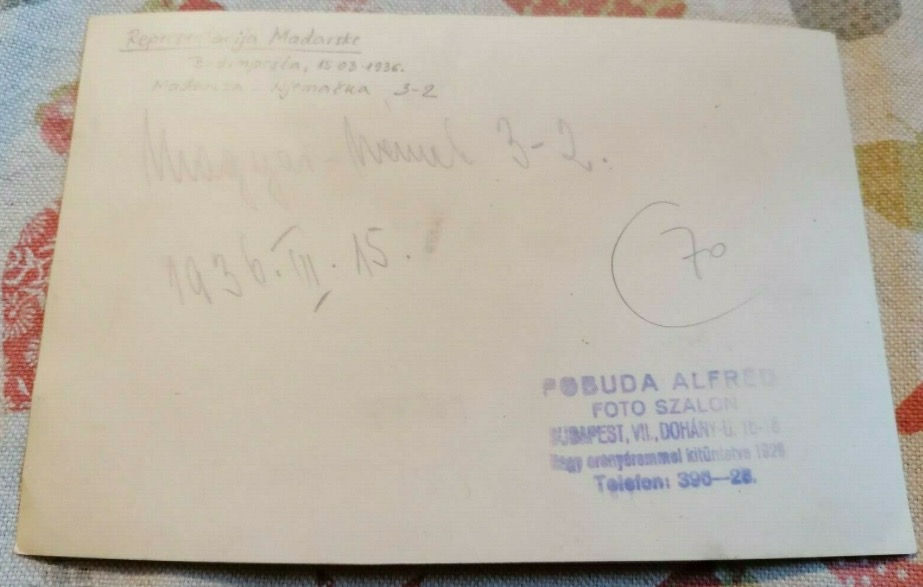 Reprezentacija Mađarske
Budimpešta, 15.03.1936.
Mađarska - Njemačka 3-2
Magyar - Német 3-2.
1936. III. 15.
70
POBUDA ALFRÉD
FOTO SZALON
BUDAPEST, VII., DOHÁNY U. 16-18
Nagy aranyéremmel kitüntetve 1926
Telefon: 396-28.